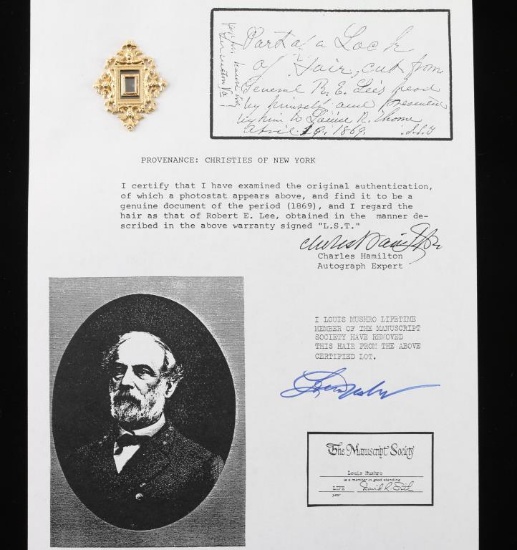 Part of a Lock
of Hair, cut from
General R. E. Lee's head
by himself and presented
by him to Louise
April 1869. L.S.T
PROVENANCE: CHRISTIES OF NEW YORK
I certify that I have examined the original authentication,
of which a photostat appears above, and find it to be a
genuine document of the period (1869), and I regard the
hair as that of Robert E. Lee, obtained in the manner de-
scribed in the above warranty signed "L.S.T."
Charles Hamilton
Autograph Expert
I LOUIS MUSHRO LIFETIME
MEMBER OF THE MANUSCRIPT
SOCIETY HAVE REMOVED
THIS HAIR FROM THE ABOVE
CERTIFIED LOT.
The Manuscript Society
Louis Mushro
LIFE